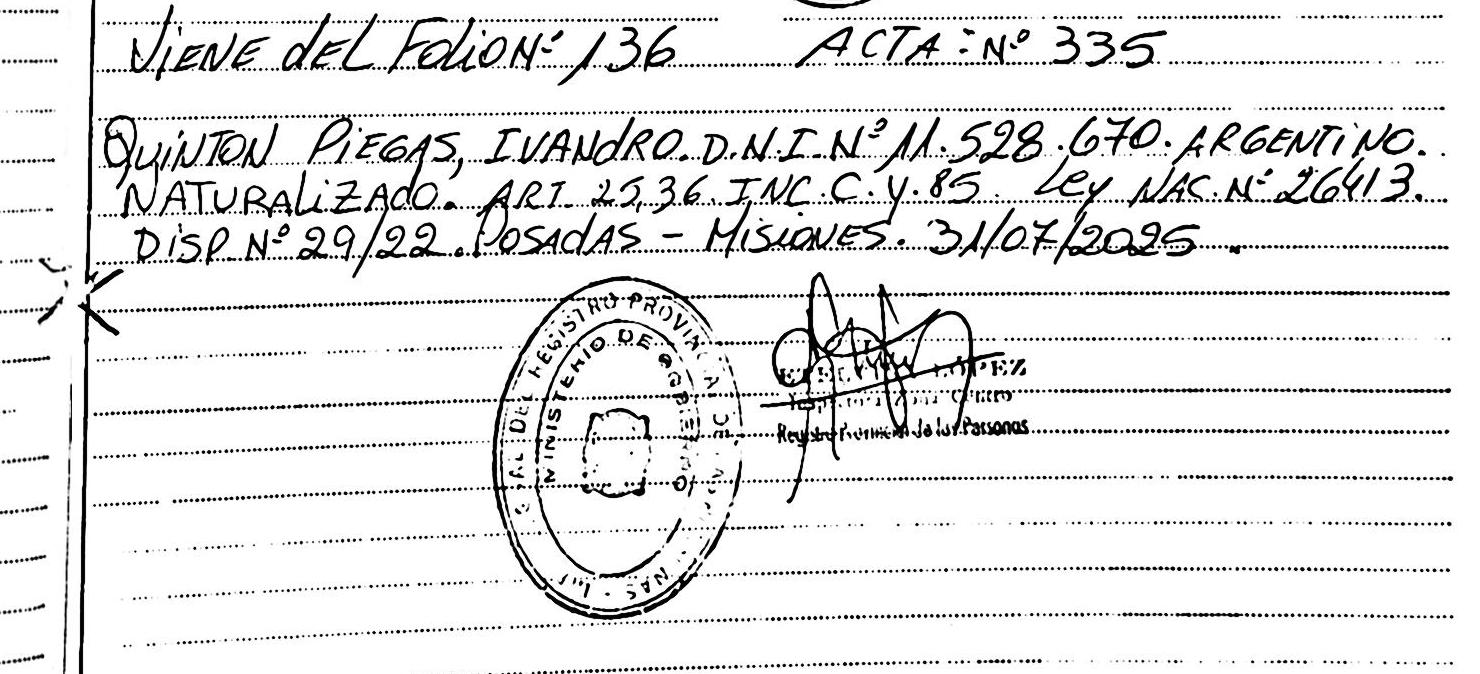 VIENE dEL FOLIO Nº 136 ACTA: Nº 335
QUINTON PIEGAS, IVANDRO. D.N.I. Nº 11.528.670. ARGENTINO.
NATURALIZADO. ART. 25,36. INC. C. Y. 85. Ley NAC. Nº 26413.
DISP. Nº 29/22. POSADAS - MISIONES. 31/07/2025.
DEL REGISTRO PROVINCIAL DE
MINISTERIO DE GOBIERNO
LOPEZ
Registro de las Personas